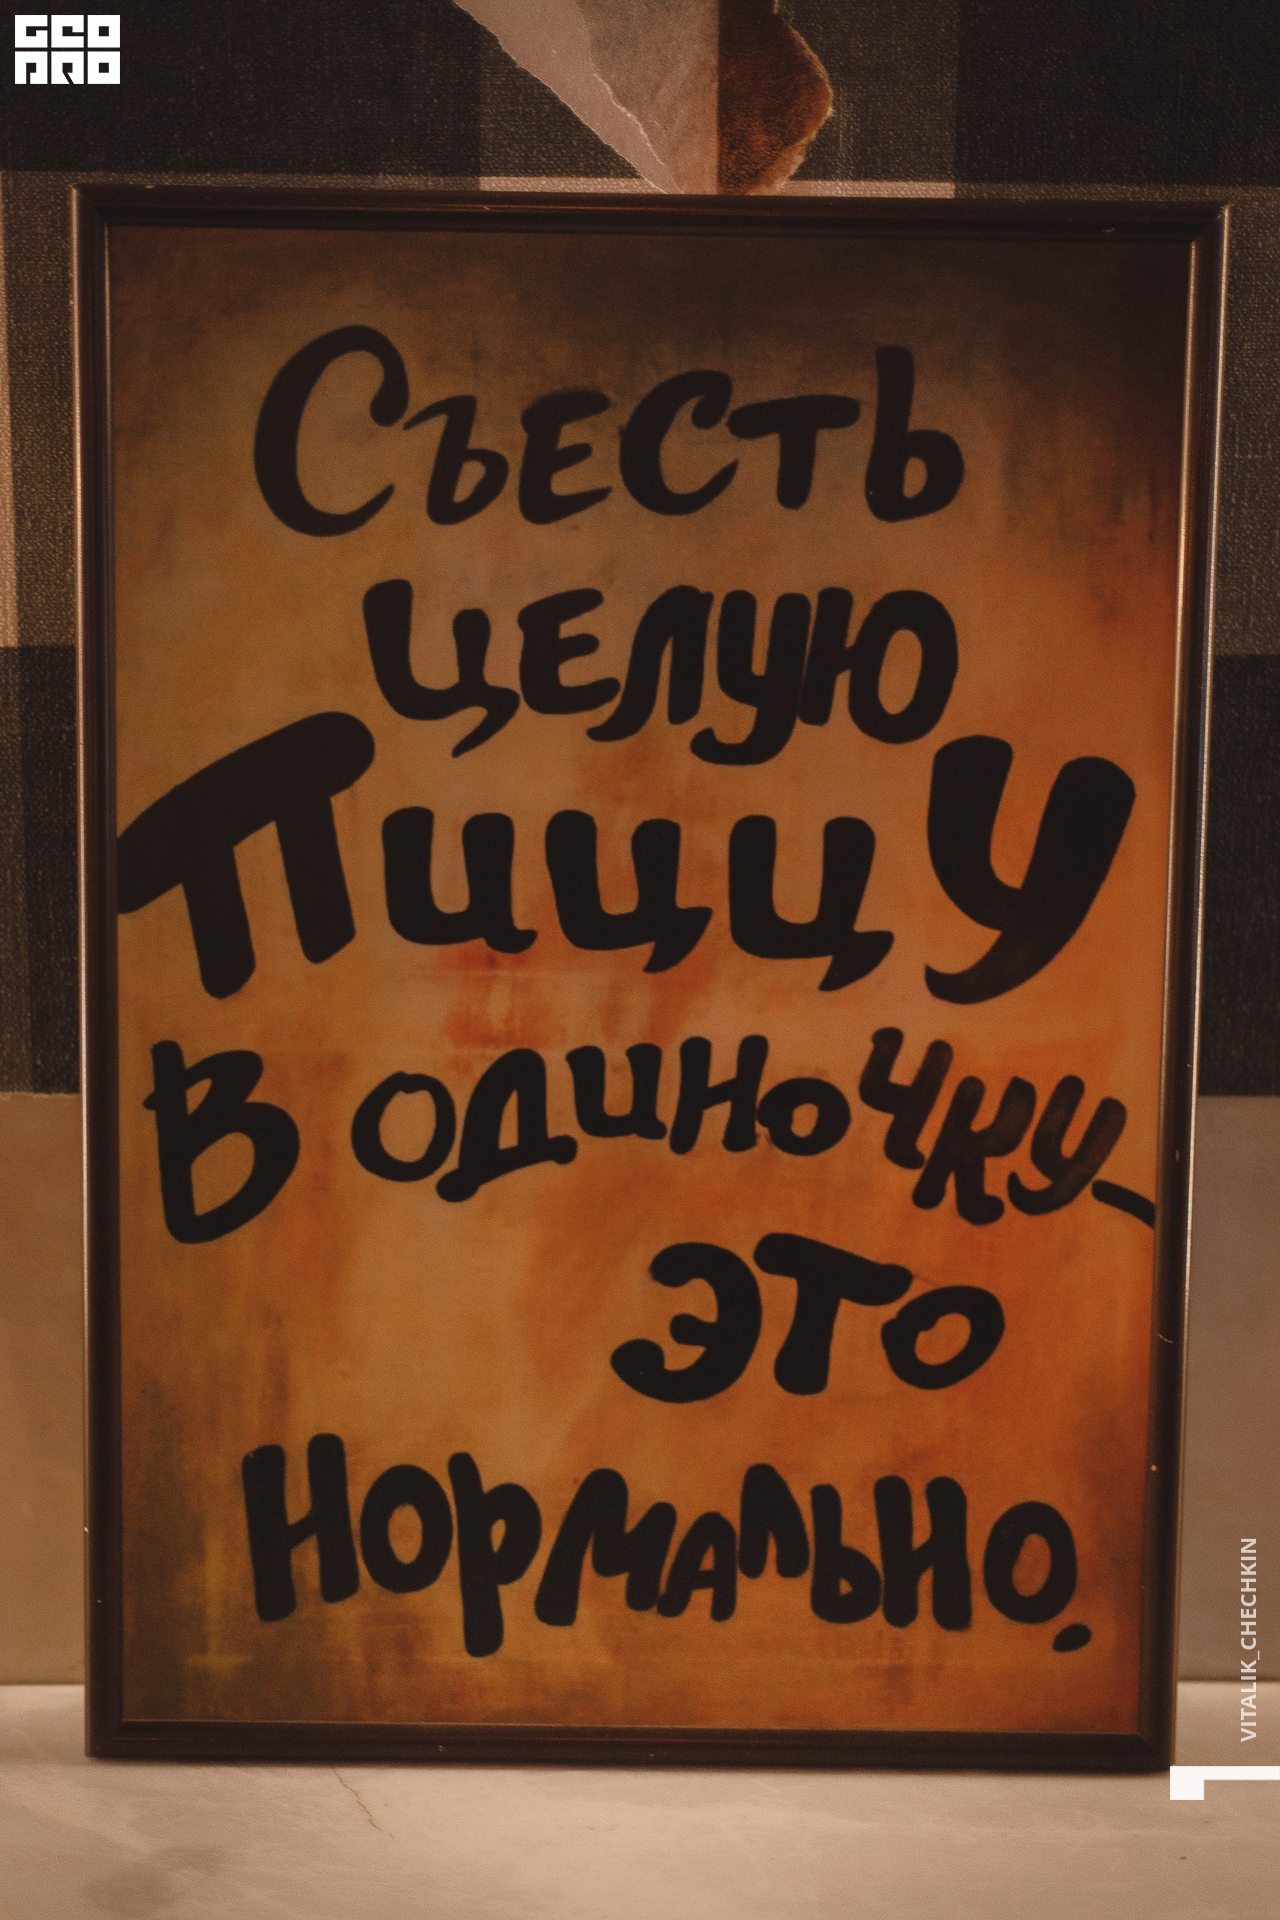 GEO
PRO
Съесть
целую
Пиццу
В одиночку-
это
нормально.
VITALIK_CHECHKIN